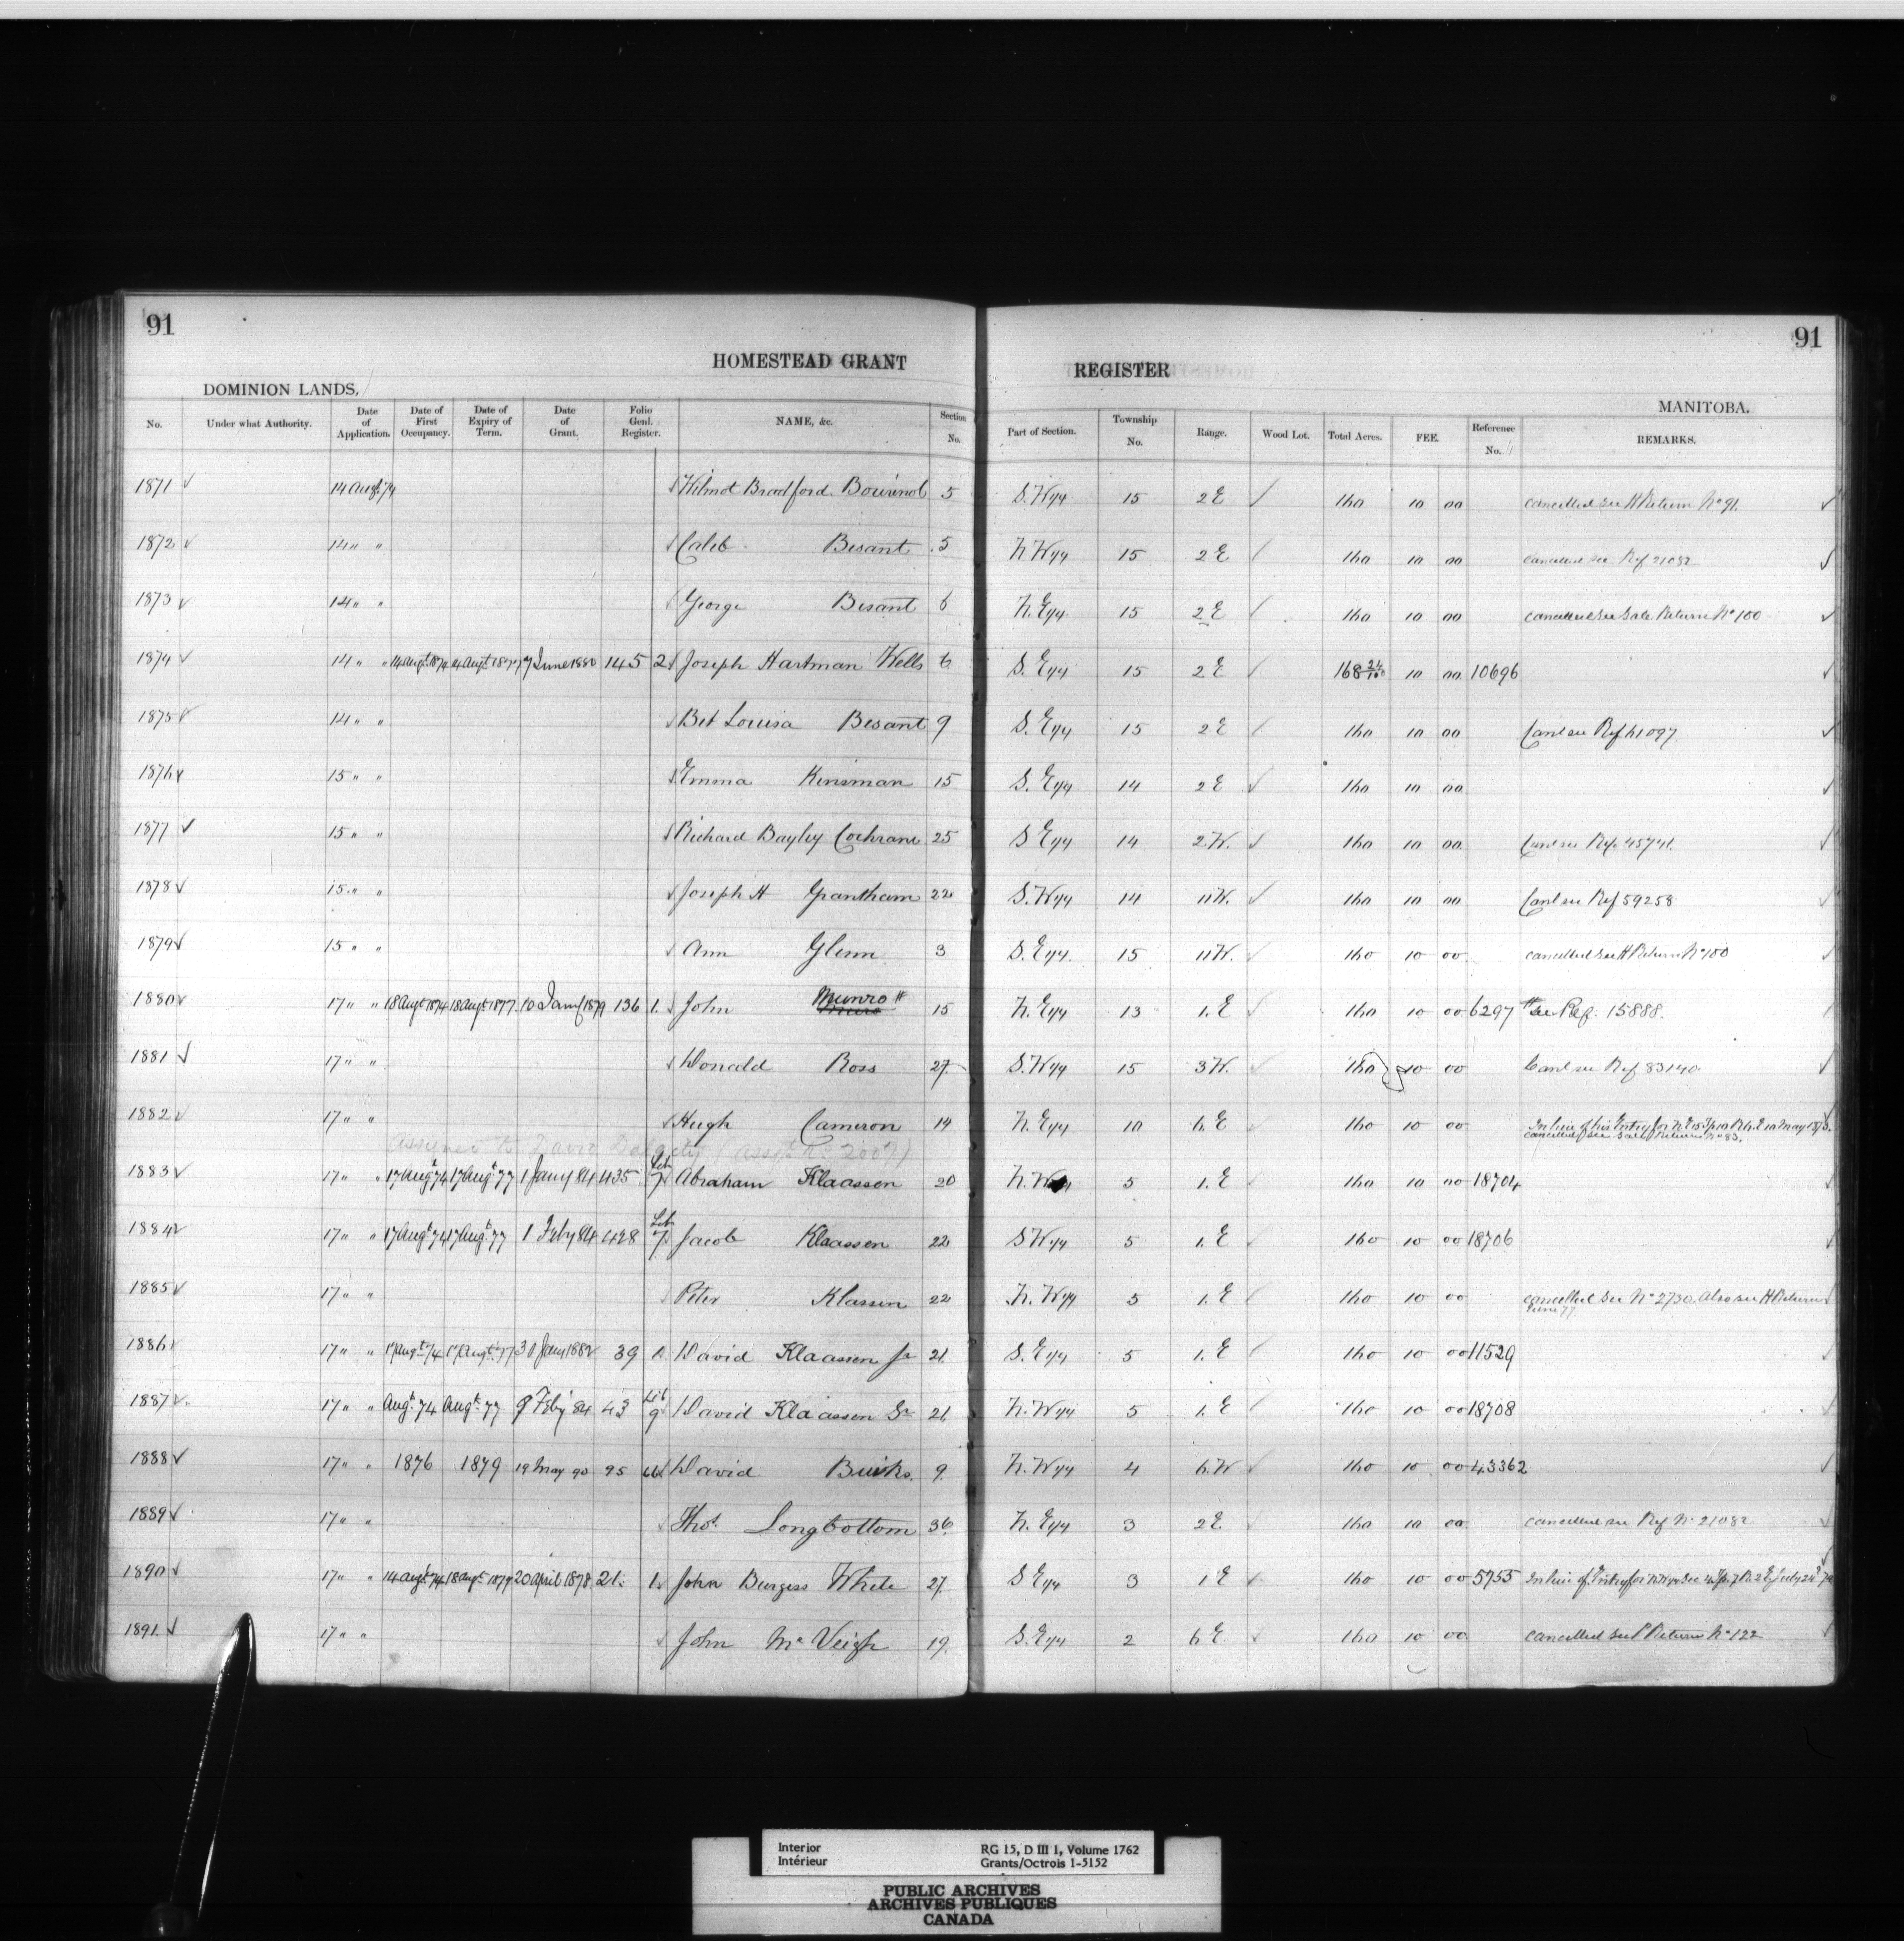 91
91
HOMESTEAD GRANT REGISTER
DOMINION LANDS,
MANITOBA.
No. Under what Authority. Date of Application. Date of First Occupancy. Date of Expiry of Term. Date of Grant. Folio Genl. Register. NAME, &c. Section No. Part of Section. Township No. Range. Wood Lot. Total Acres. FEE. Reference No. REMARKS.
1871 ✓ 14 Augt 74 Wilmot Bradford 5 S.W 1/4 15 2 E 160 10 00 cancelled see H Return No 91.
1872 ✓ 14 " " Caleb Besant 5 N W 1/4 15 2 E 160 10 00 cancelled see Ref 21082
1873 ✓ 14 " " George Besant 6 N. E 1/4 15 2 E 160 10 00 cancelled see Sale Return No 100
1874 ✓ 14 " " 14 Augt 1874 14 Augt 1877 7 June 1880 145 2 Joseph Hartman Wells 6 S. E 1/4 15 2 E 168 24/100 10 00 10696
1875 ✓ 14 " " Bet Louisa Besant 9 S. E 1/4 15 2 E 160 10 00 Canl see Ref 61097
1876 ✓ 15 " " Emma Kinsman 15 S. E 1/4 14 2 E 160 10 00
1877 ✓ 15 " " Richard Bayley Cochrane 25 S E 1/4 14 2 W. 160 10 00 Canl see Ref. 45741.
1878 ✓ 15 " " Joseph H Grantham 22 S. W 1/4 14 11 W. 160 10 00 Canl see Ref 59258
1879 ✓ 15 " " Ann Glenn 3 S. E 1/4 15 11 W. 160 10 00 cancelled see H Return No 100
1880 ✓ 17 " " 18 Augt 1874 18 Augt 1877 10 Jany 1879 136 1. John Munro # 15 N. E 1/4 13 1. E 160 10 00 6297 # see Ref. 15888.
1881 ✓ 17 " " Donald Ross 27 S. W 1/4 15 3 W. 160 10 00 Canl see Ref 83140.
1882 ✓ 17 " " Hugh Cameron 14 N. E 1/4 10 6. E 160 10 00 In lieu of his Entry for N E 15 Tp 10 R 6. E 10 May 1873.
cancelled see Sale Return No 83.
Assigned to David
1883 ✓ 17 " " 17 Augt 74 17 Augt 77 1 Jany 84 435 Lib 7 Abraham Klaassen 20 N. W 5 1. E 160 10 00 18704
1884 ✓ 17 " " 17 Augt 74 17 Augt 77 1 Feby 84 428 Lib 7 Jacob Klaassen 22 S W 1/4 5 1. E 160 10 00 18706
1885 ✓ 17 " " Peter Klassen 22 N. W 1/4 5 1. E 160 10 00 cancelled see No 2730. Also see H Return
June 77
1886 ✓ 17 " " 17 Augt 74 17 Augt 77 30 Jany 1882 39 David Klaassen Jr 21. S. E 1/4 5 1. E 160 10 00 11529
1887 ✓ 17 " " Augt. 74 Augt. 77 9 Feby 84 43 Lib 9 David Klaassen Sr 21. N. W 1/4 5 1. E 160 10 00 18708
1888 ✓ 17 " " 1876 1879 19 May 90 95 David 9. N. W 1/4 4 6. W 160 10 00 43362
1889 ✓ 17 " " Thos. Longbottom 36 N. E 1/4 3 2 E. 160 10 00 cancelled see Ref No 21082
1890 ✓ 17 " " 14 Augt 74 18 Augt 1877 20 April 1878 21. 1. John Burgess White 27. S E 1/4 3 1 E 160 10 00 5755 In lieu of Entry for N W 1/4 Sec 4 Tp. 7 R. 2 E July 24
1891. ✓ 17 " " John McVeigh 19. S. E 1/4 2 6 E. 160 10 00 cancelled see P Return No 122
Interior RG 15, D III 1, Volume 1762
Intérieur Grants/Octrois 1-5152
PUBLIC ARCHIVES
ARCHIVES PUBLIQUES
CANADA